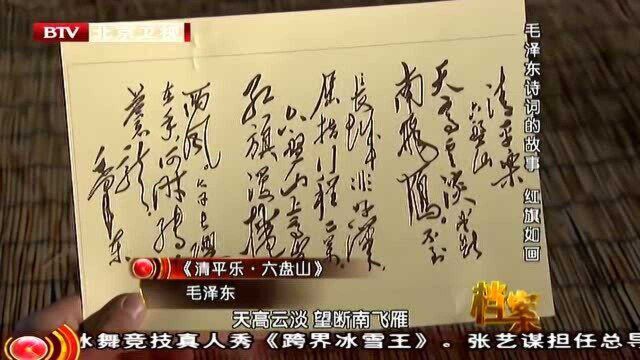 BTV 北京卫视
毛泽东诗词的故事 红旗如画
清平乐
六盘山
天高云淡 望断
南飞雁 不到
长城非好汉
屈指行程二万
六盘山上高峰
红旗漫捲
西风 今日长缨
在手何时缚
苍龙
毛泽东
《清平乐·六盘山》
毛泽东
天高云淡 望断南飞雁
档案
冰舞竞技真人秀《跨界冰雪王》。张艺谋担任总导